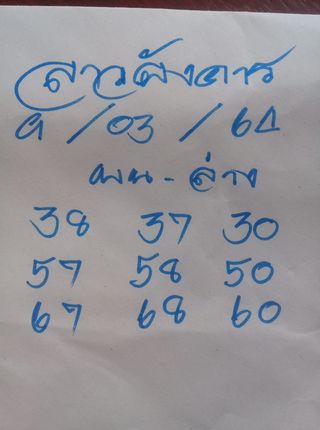 ลาวอังคาร
9 / 03 / 64
บน - ล่าง
38 37 30
57 58 50
67 68 60